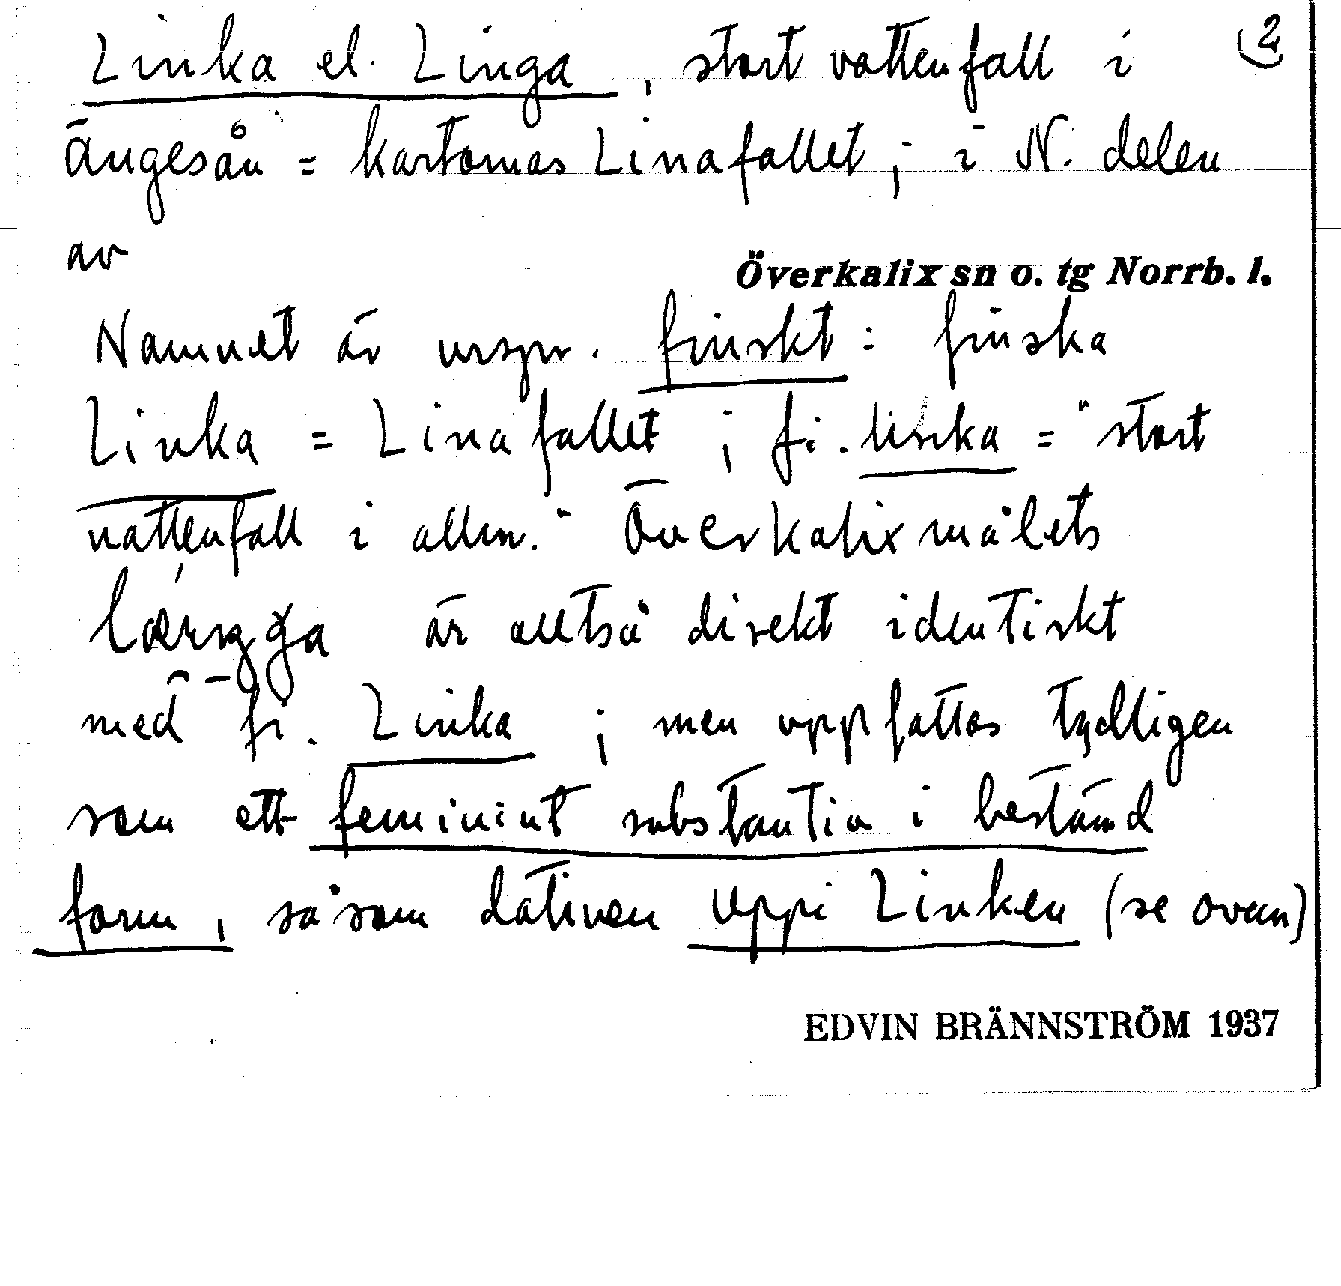 Linka el. Linga, stort vattenfall i (2
Ängesån = kartornas Linafallet; i N. delen
av
Överkalix sn o. tg Norrb. l.
Namnet är urspr. finskt: finska
Linka = Linafallet; fi. linka = "stort
vattenfall i allm." Överkalixmålets
är alltså direkt identiskt
med fi. Linka; men uppfattas tydligen
som ett feminint substantiv i bestämd
form, såsom dativen uppi Linken (se ovan)
EDVIN BRÄNNSTRÖM 1937